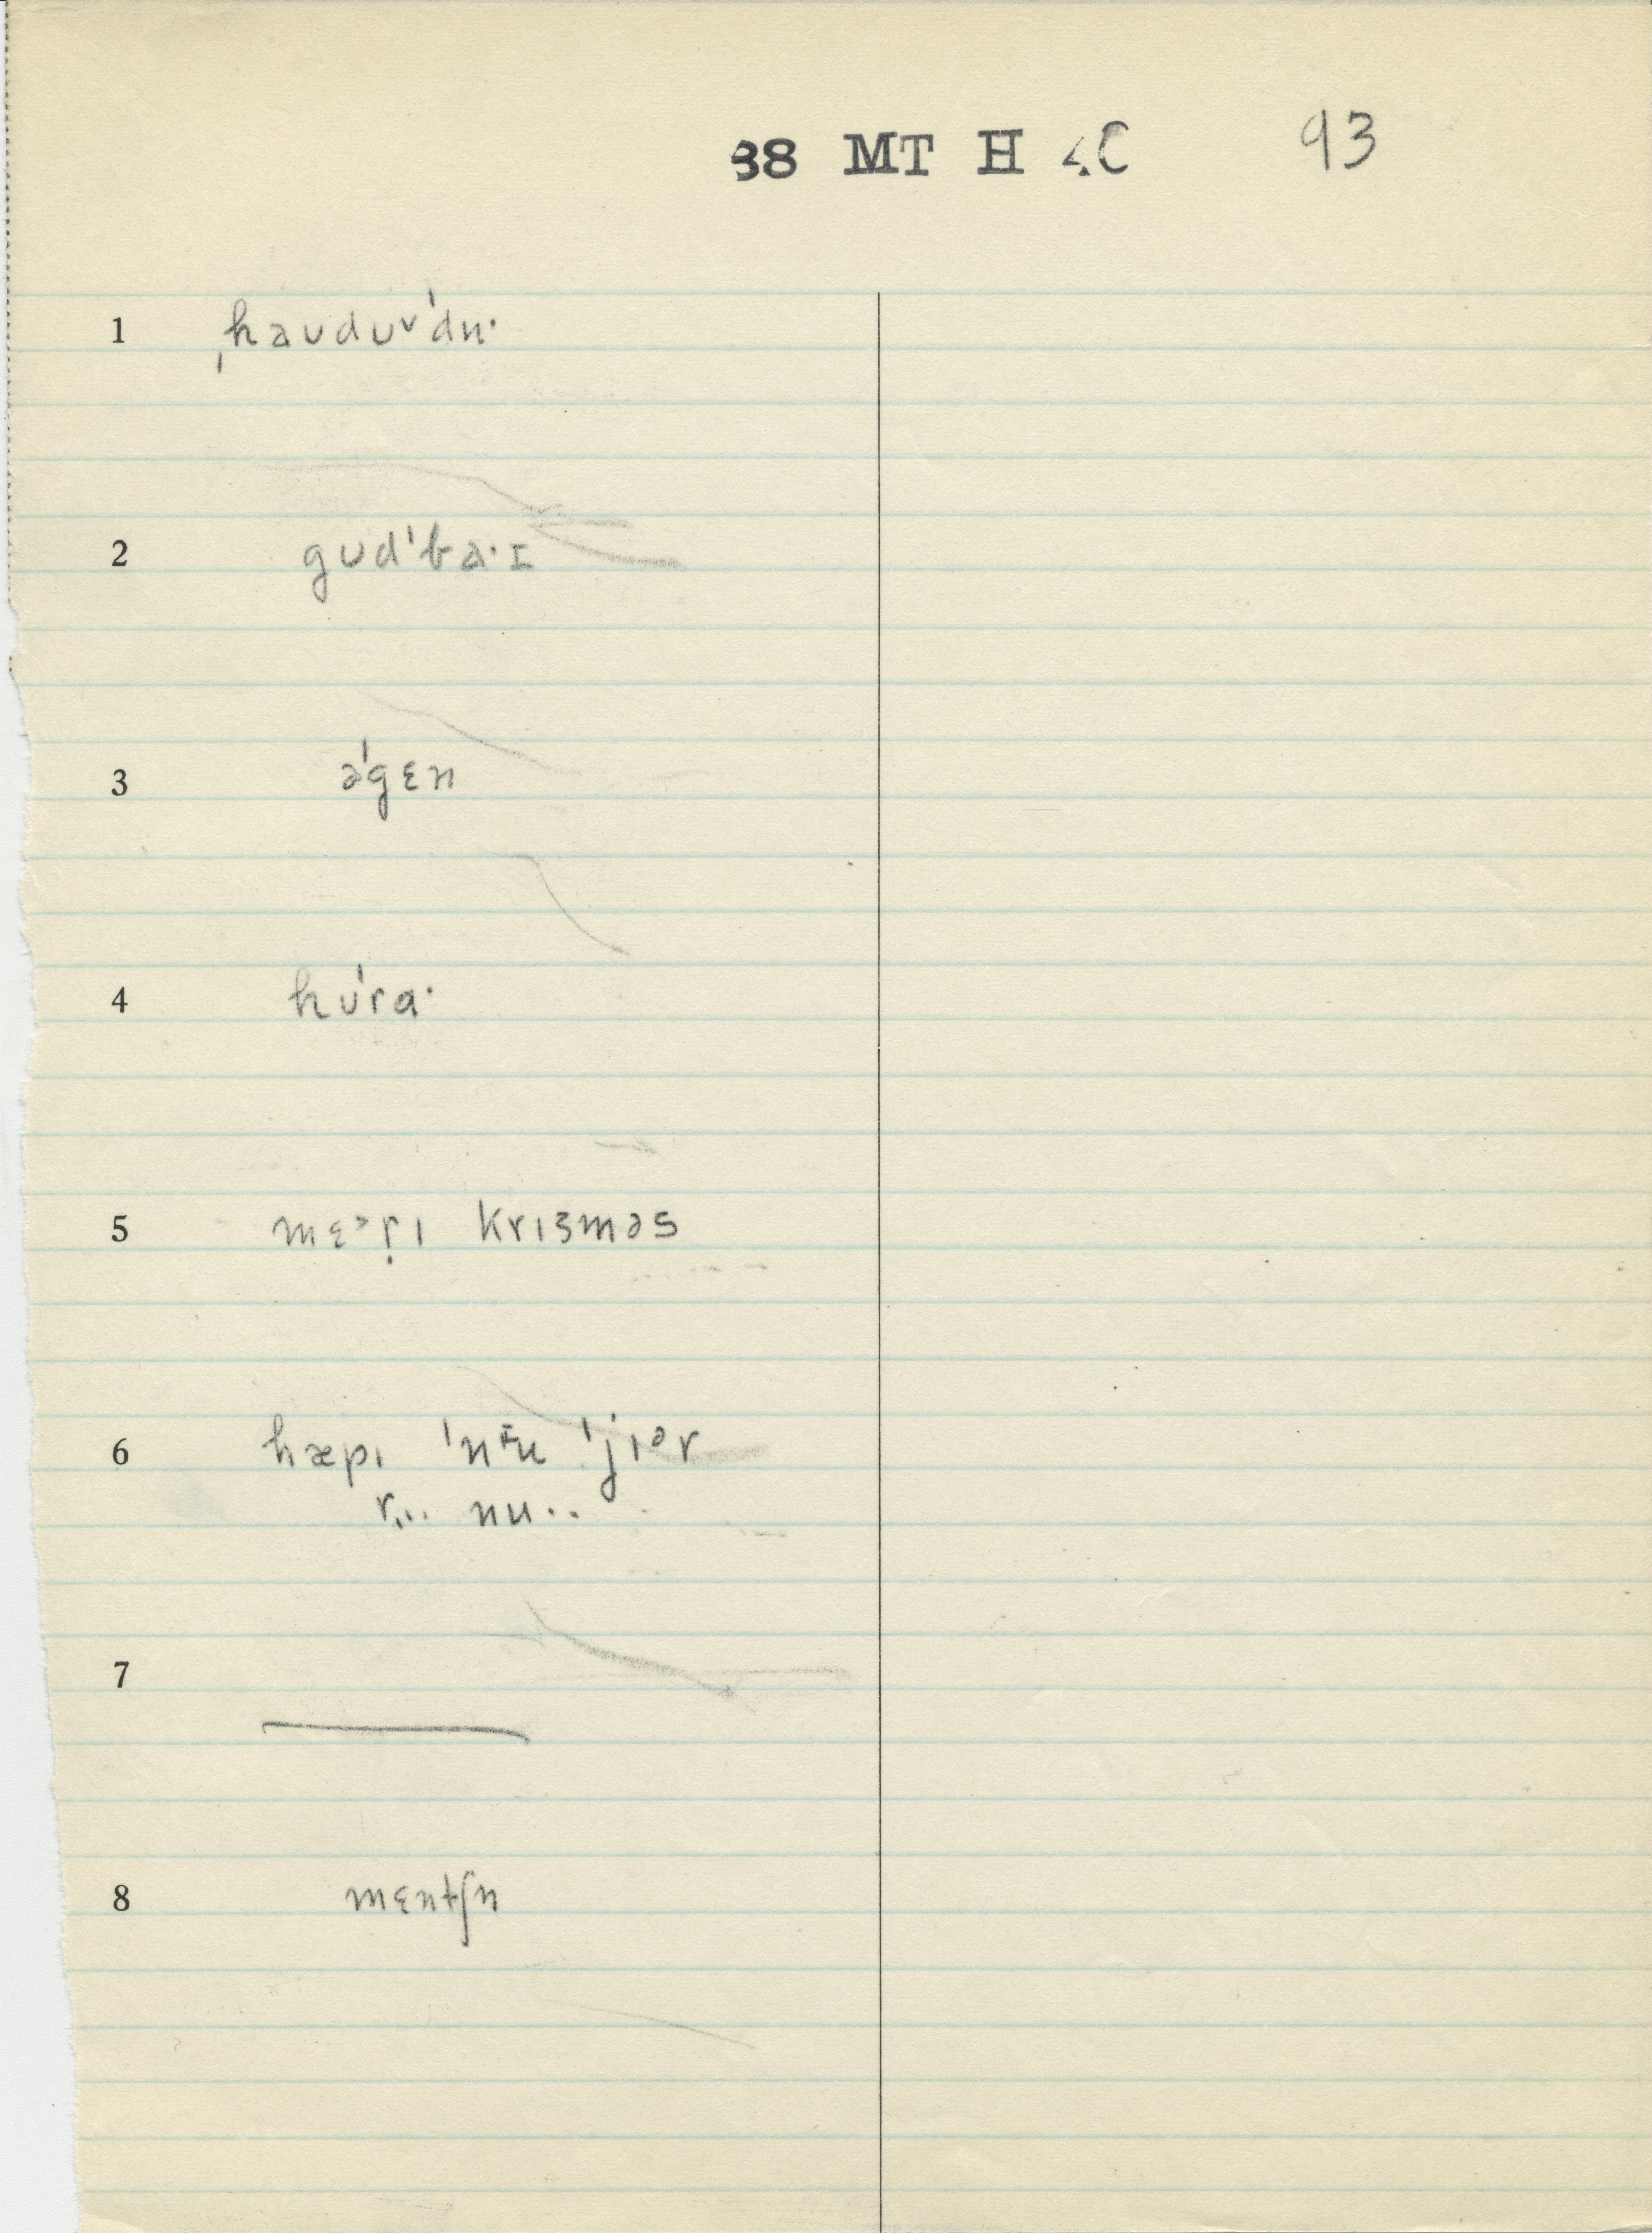 38 MT H 4C 93
1 ˌhaʊdʊᵛˈdu·
2 gʊdˈba·ɪ
3 əˈgɛn
4 hʊˈra·
5 mɛᵊṛɪ krɪsməs
6 hæpɪ ˈnᶤu ˈjɪᵊr
r... nu··
7
8 mɛntʃn